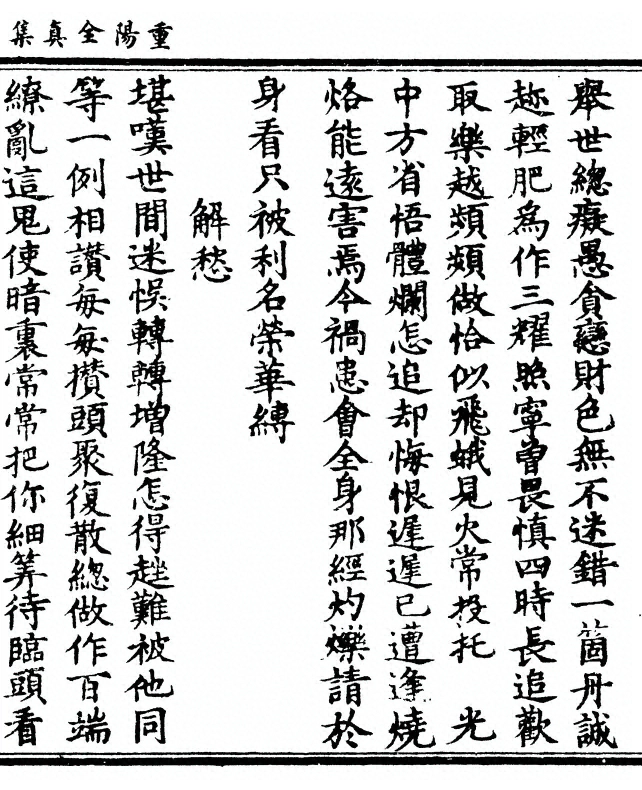 重陽全真集
舉世總癡愚貪戀財色無不迷錯一箇丹誠
趂輕肥為作三耀照寧曾畏慎四時長追歡
取樂越頻頻做恰似飛蛾見火常投托　光
中方省悟體爛怎追却悔恨遲遲已遭逢燒
烙能遠害焉今禍患會全身那經灼爍請於
身看只被利名榮華縛
解愁
堪嘆世間迷悞轉轉增隆怎得趖難被他同
等一例相讚每每攅頭聚復散總做作百端
繚亂這鬼使暗裏常常把你細筭待臨頭看